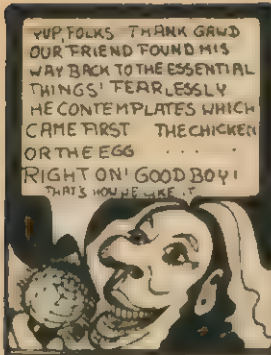 YUP, FOLKS THANK GAWD
OUR FRIEND FOUND HIS
WAY BACK TO THE ESSENTIAL
THINGS! FEARLESSLY
HE CONTEMPLATES WHICH
CAME FIRST THE CHICKEN
OR THE EGG . . . .
RIGHT ON! GOOD BOY!
THAT'S HOW WE LIKE IT